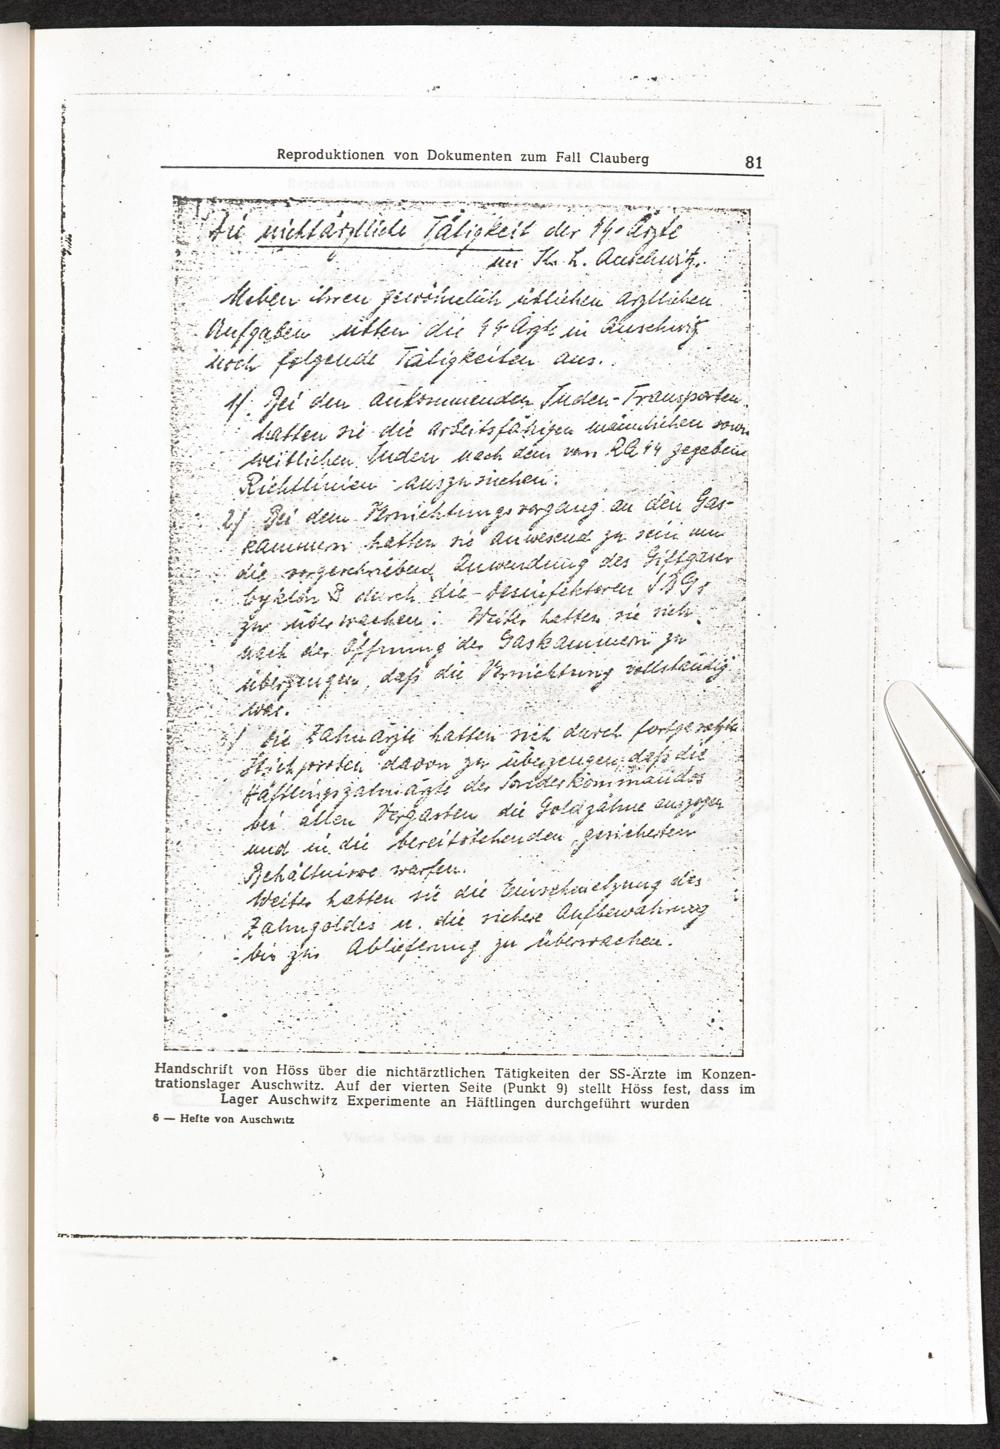 Reproduktionen von Dokumenten zum Fall Clauberg 81
Die nichtärztliche Tätigkeit der SS-Ärzte
im K. L. Auschwitz.
Neben ihren gewöhnlich üblichen ärztlichen
Aufgaben übten die SS Ärzte in Auschwitz
noch folgende Tätigkeiten aus.
1/. Bei den ankommenden Juden-Transporten
hatten sie die arbeitsfähigen männlichen sowie
weiblichen Juden nach dem vom RASS gegebene
Richtlinien auszusuchen.
2/ Bei dem Vernichtungsvorgang an den Gas-
kammern hatten sie anwesend zu sein um
die vorgeschriebene Anwendung des Giftgases
Cyklon B durch die Desinfektoren SDGs
zu überwachen. Weiter hatten sie sich
nach der Öffnung der Gaskammern zu
überzeugen, daß die Vernichtung vollständig
war.
3/ Die Zahnärzte hatten sich durch fortgesetzte
Stichproben davon zu überzeugen, daß die
Häftlingszahnärzte des Sonderkommandos
bei allen Vergasten die Goldzähne auszogen
und in die bereitstehenden, gesicherten
Behältnisse warfen.
Weiter hatten sie die Einschmelzung des
Zahngoldes u. die sichere Aufbewahrung
bis zur Ablieferung zu überwachen.
Handschrift von Höss über die nichtärztlichen Tätigkeiten der SS-Ärzte im Konzen-
trationslager Auschwitz. Auf der vierten Seite (Punkt 9) stellt Höss fest, dass im
Lager Auschwitz Experimente an Häftlingen durchgeführt wurden
6 — Hefte von Auschwitz